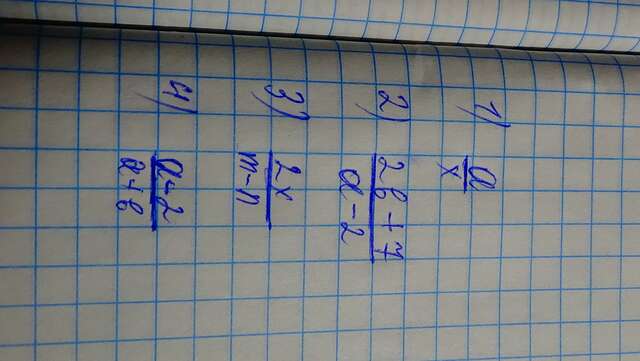 1) a/x
2) 2b+7/a-2
3) 2x/m-n
4) a-2/a+b